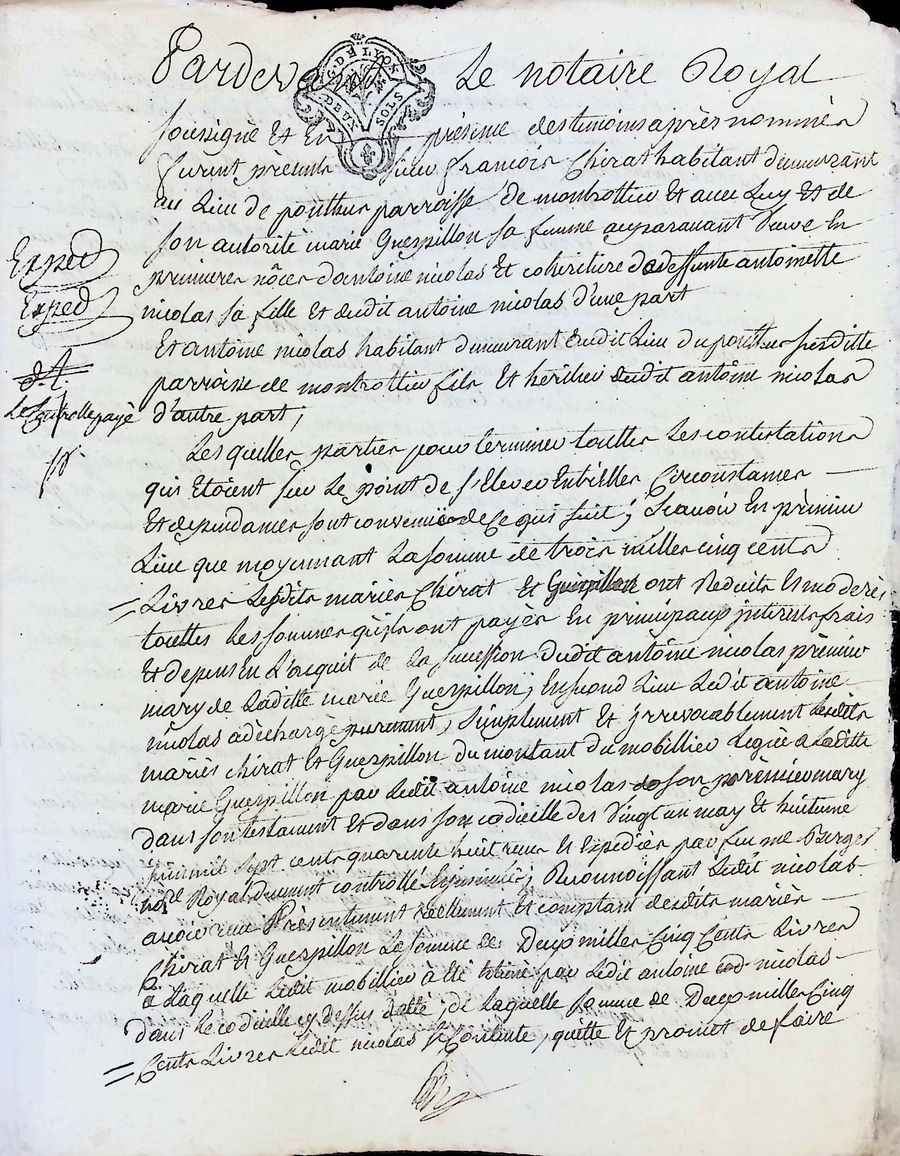 Pardev Le notaire Royal
G. DE LYON
DEUX SOLS
sousigné Et En présence des temoins après nommés
furent presents sieur francois Chirat habitant demeurant
au Lieu de ponthus parroisse de montrottier Et avec Luy Et de
son autorité marie Guerpillon sa femme auparavant Veuve En
premieres nôces d'antoine nicolas Et coheritiere de deffunte antoinette
nicolas sa fille Et dudit antoine nicolas d'une part
Et antoine nicolas habitant demeurant dudit Lieu du ponthus susditte
parroisse de montrottier fils Et heritier dudit antoine nicolas
d'autre part ;
Exped
Exped
Le Controlle payé
Lesquelles parties pour terminer touttes Les contestations
qui Etoient sur Le point de s'Elever Entr'elles Circonstances
Et dependances sont convenües de Ce qui suit ; Scavoir En prémier
Lieu que moyennant La somme de trois milles cinq cents
= Livres Lesdits mariés Chirat Et Guerpillon ont Reduits Et moderés
touttes Les sommes qu'ils ont payés En principaux interets frais
Et depens En L'acquit de La succession dudit antoine nicolas prémier
mary de Laditte marie Guerpillon ; En second Lieu Ledit antoine
nicolas a déchargé purement, simplement Et yrrevocablement Lesdits
mariés chirat Et Guerpillon du montant du mobillier Legué a Laditte
marie Guerpillon par Ledit antoine nicolas de son prémier mary
dans son testament Et dans son codicille des Vingt un may Et huitieme
juin mil sept cents quarente huit reçus Et Expediés par feu me Burger
nore Royal duement controllé ; Reconnoissant Ledit nicolas
avoir reçu Présentement réellement Et comptant desdits mariés
Chirat Et Guerpillon La somme de Deux milles Cinq Cents Livres
a Laquelle Ledit mobillier à Eté par Ledit antoine nicolas
dans Le codicille cy dessus datté ; de Laquelle somme de Deux milles Cinq
= Cents Livres Ledit nicolas se Contente, quitte Et promet de faire